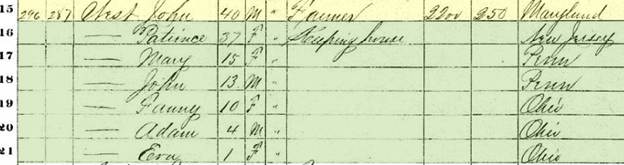 15 296 287 West John 40 M " Farmer 2200 250 Maryland
16 — Patience 37 F " Keeping house New Jersey
17 — Mary 15 F " Penn
18 — John 13 M " Penn
19 — Fanny 10 F " Ohio
20 — Adam 4 M " Ohio
21 — Eva 1 F " Ohio